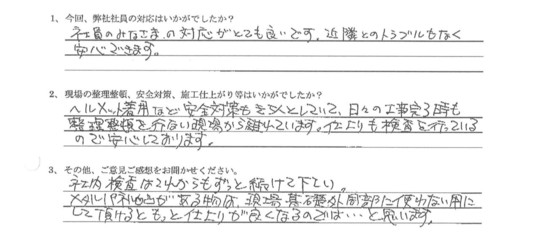 1、今回、弊社社員の対応はいかがでしたか?
社員のみなさまの対応がとても良いです。近隣とのトラブルもなく
安心できます。
2、現場の整理整頓、安全対策、施工仕上がり等はいかがでしたか?
ヘルメット着用など安全対策もきちんとしていて、日々の工事完了時も
整理整頓を行ない現場から離れています。仕上りも検査を行っている
ので安心しております。
3、その他、ご意見ご感想をお聞かせください。
社内検査はこれからもずっと続けて下さい。
メタルパネルに がある物は、現場基礎外周部に使わない用に
して頂けるともっと仕上りが良くなるのでは…と思います。